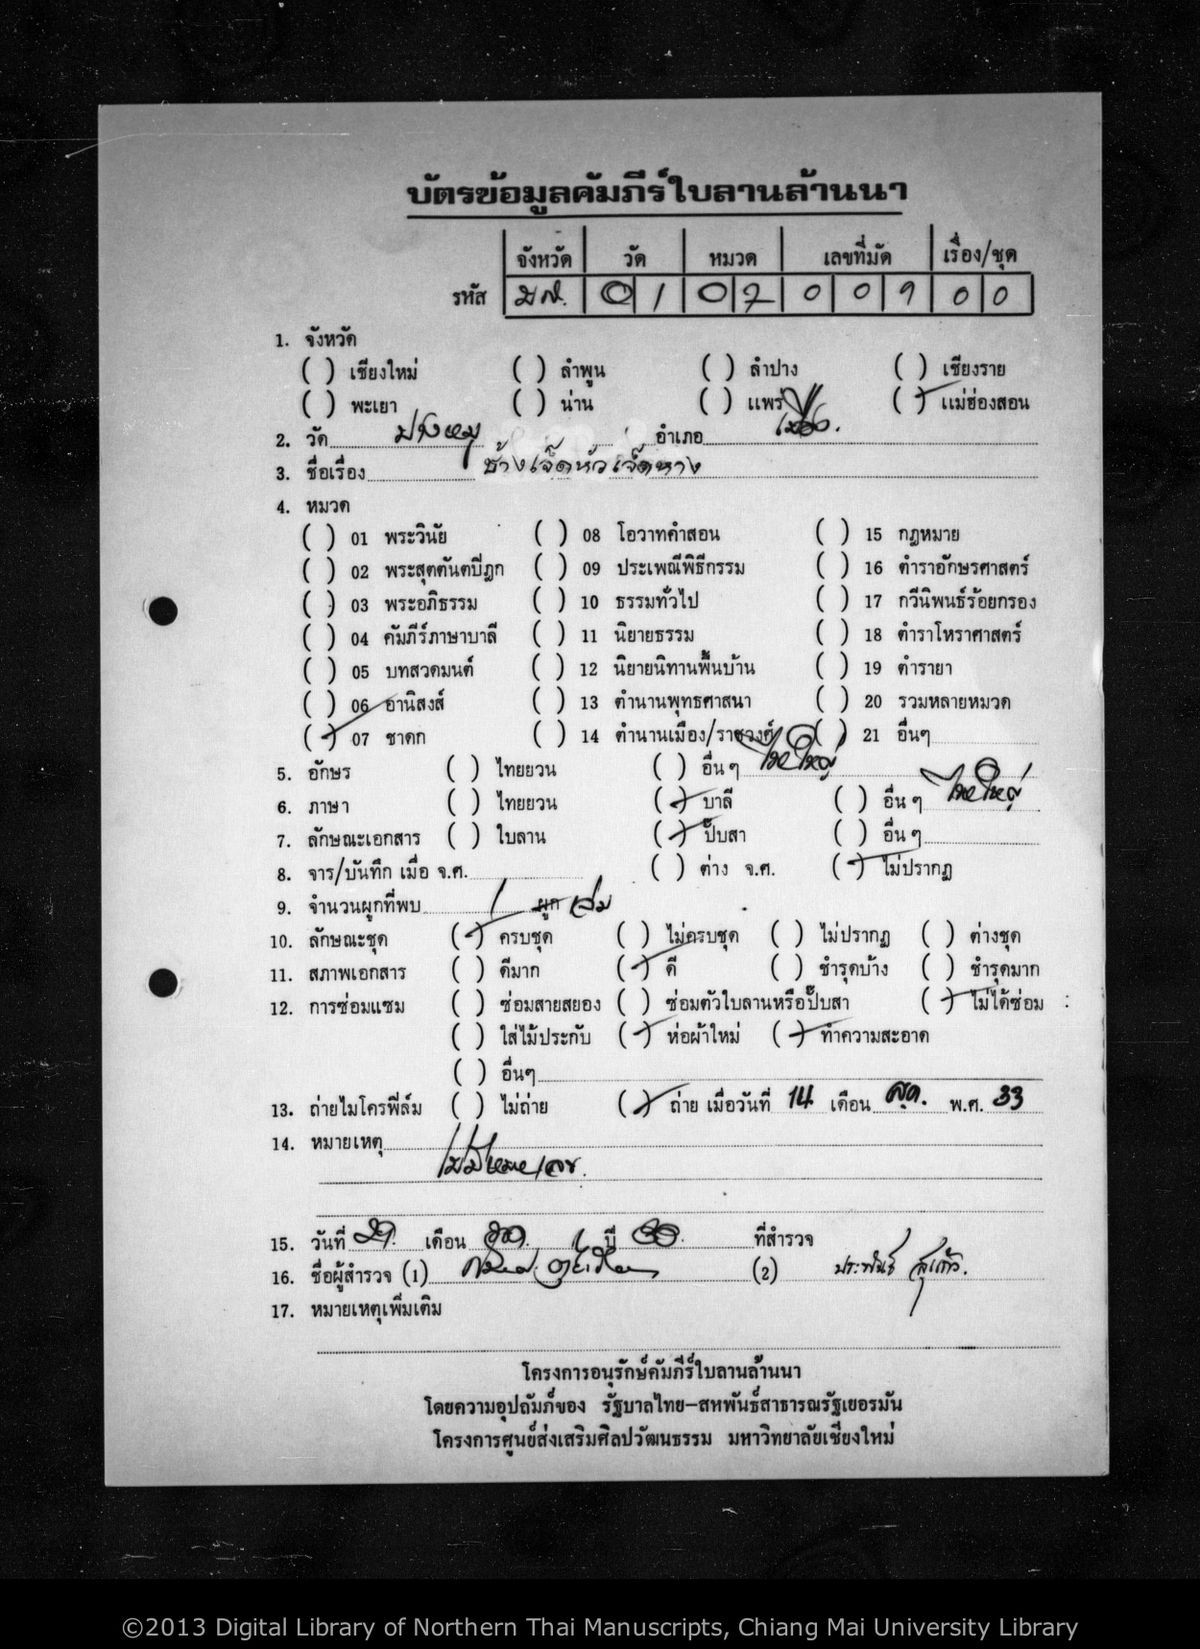 บัตรข้อมูลคัมภีร์ใบลานล้านนา
จังหวัด วัด หมวด เลขที่มัด เรื่อง/ชุด
รหัส มส. 01 07 009 00
1. จังหวัด
( ) เชียงใหม่ ( ) ลำพูน ( ) ลำปาง ( ) เชียงราย
( ) พะเยา ( ) น่าน ( ) แพร่ (/) แม่ฮ่องสอน
2. วัด ปางหมู อำเภอ เมือง.
3. ชื่อเรื่อง ช้างเจ็ดหัวเจ็ดหาง
4. หมวด
( ) 01 พระวินัย ( ) 08 โอวาทคำสอน ( ) 15 กฎหมาย
( ) 02 พระสุตตันตปิฎก ( ) 09 ประเพณีพิธีกรรม ( ) 16 ตำราอักษรศาสตร์
( ) 03 พระอภิธรรม ( ) 10 ธรรมทั่วไป ( ) 17 กวีนิพนธ์ร้อยกรอง
( ) 04 คัมภีร์ภาษาบาลี ( ) 11 นิยายธรรม ( ) 18 ตำราโหราศาสตร์
( ) 05 บทสวดมนต์ ( ) 12 นิยายนิทานพื้นบ้าน ( ) 19 ตำรายา
( ) 06 อานิสงส์ ( ) 13 ตำนานพุทธศาสนา ( ) 20 รวมหลายหมวด
(/) 07 ชาดก ( ) 14 ตำนานเมือง/ราชวงศ์ ( ) 21 อื่นๆ
5. อักษร ( ) ไทยยวน ( ) อื่นๆ ไทใหญ่
6. ภาษา ( ) ไทยยวน (/) บาลี ( ) อื่นๆ ไทใหญ่
7. ลักษณะเอกสาร ( ) ใบลาน (/) ปั๊บสา ( ) อื่นๆ
8. จาร/บันทึก เมื่อ จ.ศ. ( ) ต่าง จ.ศ. (/) ไม่ปรากฏ
9. จำนวนผูกที่พบ 1 ผูก เล่ม
10. ลักษณะชุด (/) ครบชุด ( ) ไม่ครบชุด ( ) ไม่ปรากฏ ( ) ต่างชุด
11. สภาพเอกสาร ( ) ดีมาก (/) ดี ( ) ชำรุดบ้าง ( ) ชำรุดมาก
12. การซ่อมแซม ( ) ซ่อมสายสยอง ( ) ซ่อมตัวใบลานหรือปั๊บสา (/) ไม่ได้ซ่อม
( ) ใส่ไม้ประกับ (/) ห่อผ้าใหม่ (/) ทำความสะอาด
( ) อื่นๆ
13. ถ่ายไมโครฟิล์ม ( ) ไม่ถ่าย (/) ถ่าย เมื่อวันที่ 14 เดือน พ.ศ. 33
14. หมายเหตุ
ไม่มีหมายเลข.
15. วันที่ 29 เดือน ปี 33. ที่สำรวจ
16. ชื่อผู้สำรวจ (1) (2) ประพันธ์ สุแก้ว.
17. หมายเหตุเพิ่มเติม
โครงการอนุรักษ์คัมภีร์ใบลานล้านนา
โดยความอุปถัมภ์ของ รัฐบาลไทย-สหพันธ์สาธารณรัฐเยอรมัน
โครงการศูนย์ส่งเสริมศิลปวัฒนธรรม มหาวิทยาลัยเชียงใหม่
©2013 Digital Library of Northern Thai Manuscripts, Chiang Mai University Library